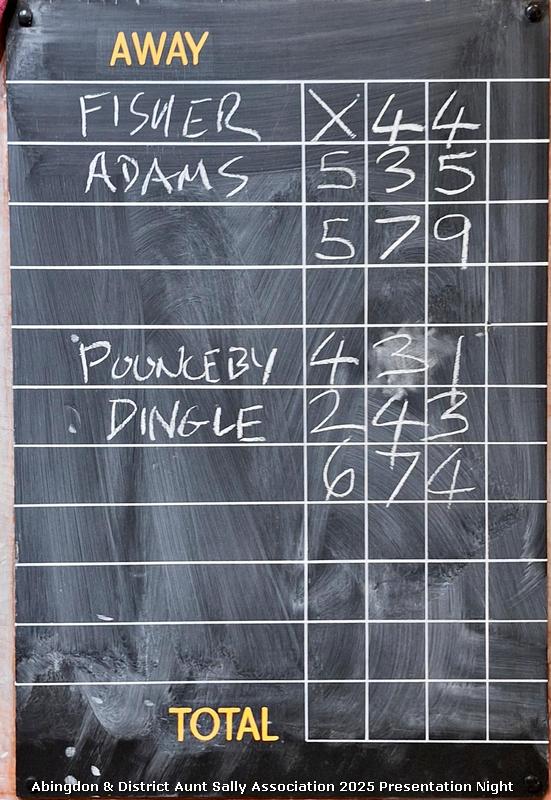 AWAY
FISHER X 4 4
ADAMS 5 3 5
5 7 9
POUNCEBY 4 3 1
DINGLE 2 4 3
6 7 4
TOTAL
Abingdon & District Aunt Sally Association 2025 Presentation Night